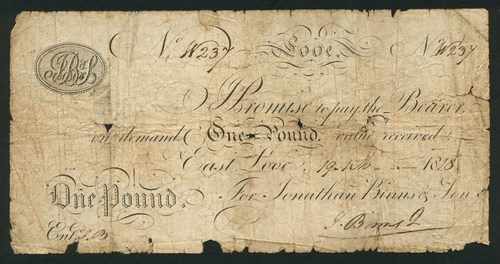 No W237 Looe No W237
I Promise to pay the Bearer
on demand One Pound value received
East Looe 1818
One Pound. For Jonathan Binns & Son
Entd J. B. J. Binns